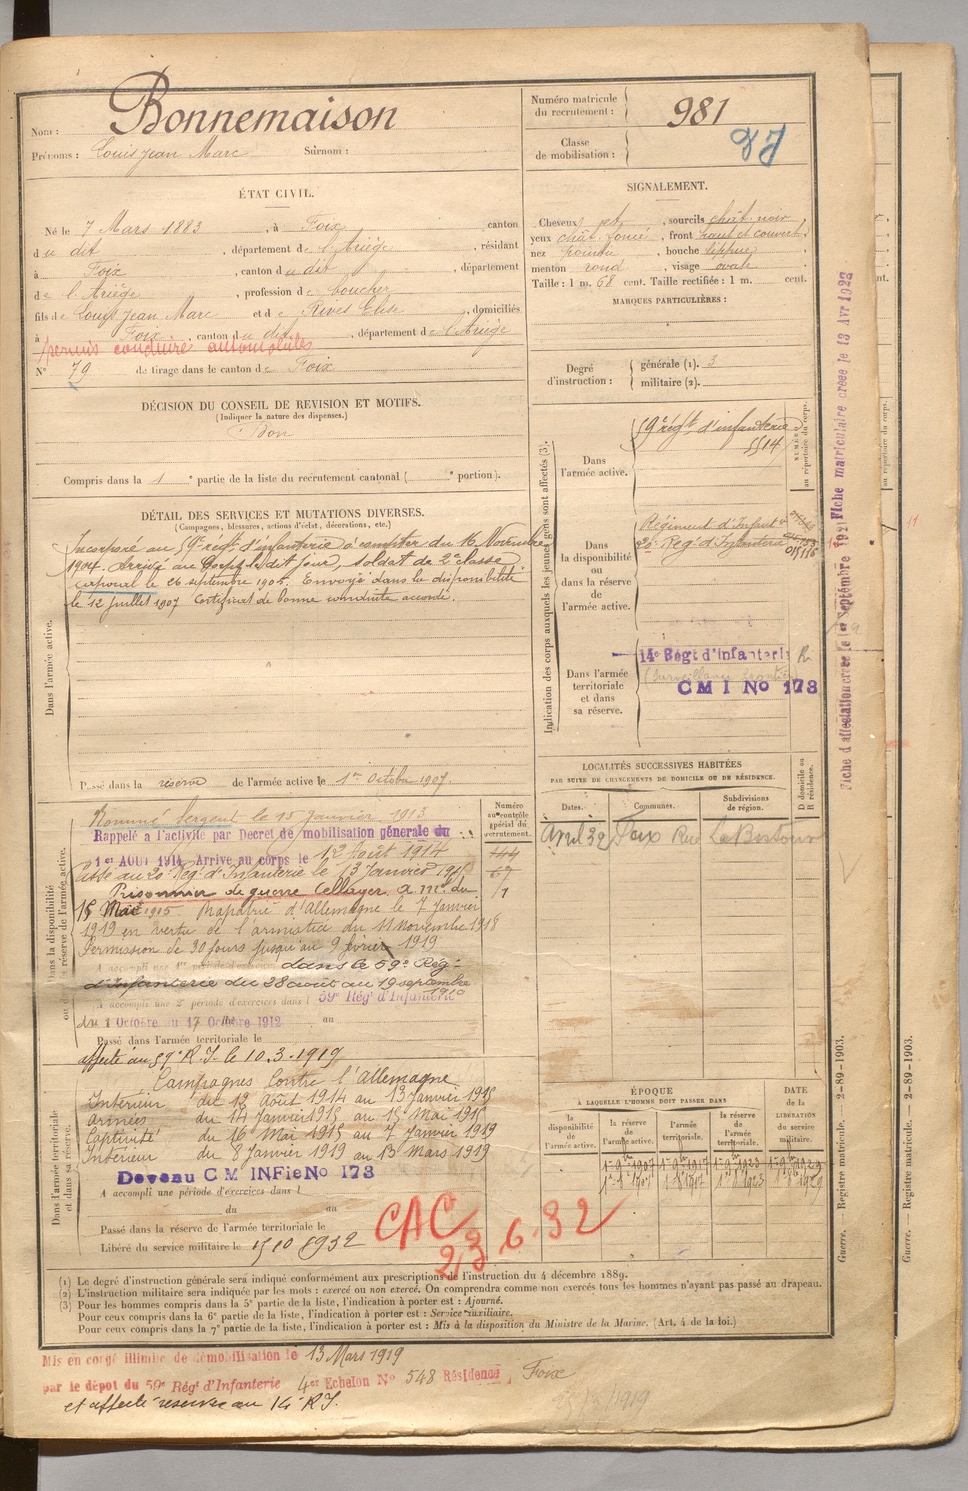 Nom : Bonnemaison
Prénoms : Louis Jean Marc Surnom :
Numéro matricule du recrutement : 981
Classe de mobilisation :
ÉTAT CIVIL.
Né le 7 Mars 1883, à Foix canton
du dit, département de l'Ariège, résidant
à Foix, canton du dit, département
de l'Ariège, profession de boucher
fils de Louis Jean Marc et de Rives Elise, domiciliés
à Foix, canton du dit, département de l'Ariège
permis conduire automobiles
N° 79 de tirage dans le canton de Foix
SIGNALEMENT.
Cheveux jet, sourcils chât. noir,
yeux chât. foncé, front haut et couvert,
nez pointu, bouche lippue,
menton rond, visage ovale
Taille : 1 m. 68 cent. Taille rectifiée : 1 m. cent.
MARQUES PARTICULIÈRES :
Degré d'instruction : générale (1). 3
militaire (2).
DÉCISION DU CONSEIL DE REVISION ET MOTIFS.
(Indiquer la nature des dispenses.)
Bon
Compris dans la 1e partie de la liste du recrutement cantonal ( e portion).
DÉTAIL DES SERVICES ET MUTATIONS DIVERSES.
(Campagnes, blessures, actions d'éclat, décorations, etc.)
Dans l'armée active.
Incorporé au 59e régt d'infanterie à compter du 16 Novembre
1904. Arrivé au Corps le dit jour, soldat de 2e classe
caporal le 26 septembre 1905. Envoyé dans la disponibilité
le 12 juillet 1907 Certificat de bonne conduite accordé.
Passé dans la réserve de l'armée active le 1er Octobre 1907.
Indication des corps auxquels les jeunes gens sont affectés (3).
NUMÉRO au répertoire du corps.
Dans l'armée active. 59e régt d'infanterie
5514
Dans la disponibilité ou dans la réserve de l'armée active.
Régiment d'Infant
20e Rég. d'Infanterie
Dans l'armée territoriale et dans sa réserve.
14e Régt d'infanterie
(Surveillance
CMI No 173
LOCALITÉS SUCCESSIVES HABITÉES
PAR SUITE DE CHANGEMENTS DE DOMICILE OU DE RÉSIDENCE.
Dates. Communes. Subdivisions de région. D domicile ou R résidence.
Avril 32 Foix Rue
Numéro au contrôle spécial du recrutement.
144
67
1
ou dans la disponibilité la réserve de l'armée active.
Nommé Sergent le 15 Janvier 1913
Rappelé à l'activité par Decret de mobilisation générale du
1er AOUT 1914 Arrivé au corps le 12 Août 1914
Passé au 20e Rég. d'Infanterie le 13 Janvier 1915
Prisonnier de guerre
15 Mai 1915. Rapatrié d'Allemagne le 7 Janvier
1919 en vertu de l'armistice du 11 novembre 1918
Permission de 30 jours jusqu'au 9 février 1919
A accompli une 1re période d'exercices dans le 59e Rég.
d'Infanterie du 28 août au 19 septembre 1910
A accompli une 2e période d'exercices dans l 59e Régt d'Infanterie
du 1 Octobre au 17 Octobre 1912 au
Passé dans l'armée territoriale le
affecté au 59e R.I. le 10.3.1919
Dans l'armée territoriale et dans sa réserve.
Campagnes Contre l'Allemagne
Intérieur du 12 août 1914 au 13 Janvier 1915
Armées du 14 Janvier 1915 au 15 Mai 1915
Captivité du 16 Mai 1915 au 7 Janvier 1919
Intérieur du 8 Janvier 1919 au 13 Mars 1919
Devenu C M INFie No 173
A accompli une période d'exercices dans l
du au
Passé dans la réserve de l'armée territoriale le
Libéré du service militaire le 15 10 1932
CAC
23.6.32
ÉPOQUE
A LAQUELLE L'HOMME DOIT PASSER DANS
la disponibilité de l'armée active. la réserve de l'armée active. l'armée territoriale. la réserve de l'armée territoriale.
DATE de la LIBÉRATION du service militaire.
(1) Le degré d'instruction générale sera indiqué conformément aux prescriptions de l'instruction du 4 décembre 1889.
(2) L'instruction militaire sera indiquée par les mots : exercé ou non exercé. On comprendra comme non exercés tous les hommes n'ayant pas passé au drapeau.
(3) Pour les hommes compris dans la 5e partie de la liste, l'indication à porter est : Ajourné.
Pour ceux compris dans la 6e partie de la liste, l'indication à porter est : Service auxiliaire.
Pour ceux compris dans la 7e partie de la liste, l'indication à porter est : Mis à la disposition du Ministre de la Marine. (Art. 4 de la loi.)
Mis en congé illimité de démobilisation le 13 Mars 1919
par le dépôt du 59e Régt d'Infanterie 4er Echelon No 548 Résidence, Foix
et affecté réserve au 14e R.I.
25/3/1919
Fiche d'affectation créée le 1er Septembre 1921
Fiche matriculaire créée le 13 Avr 1923
Guerre. — Registre matricule. — 2-89-1903.
Guerre. — Registre matricule. — 2-89-1903.